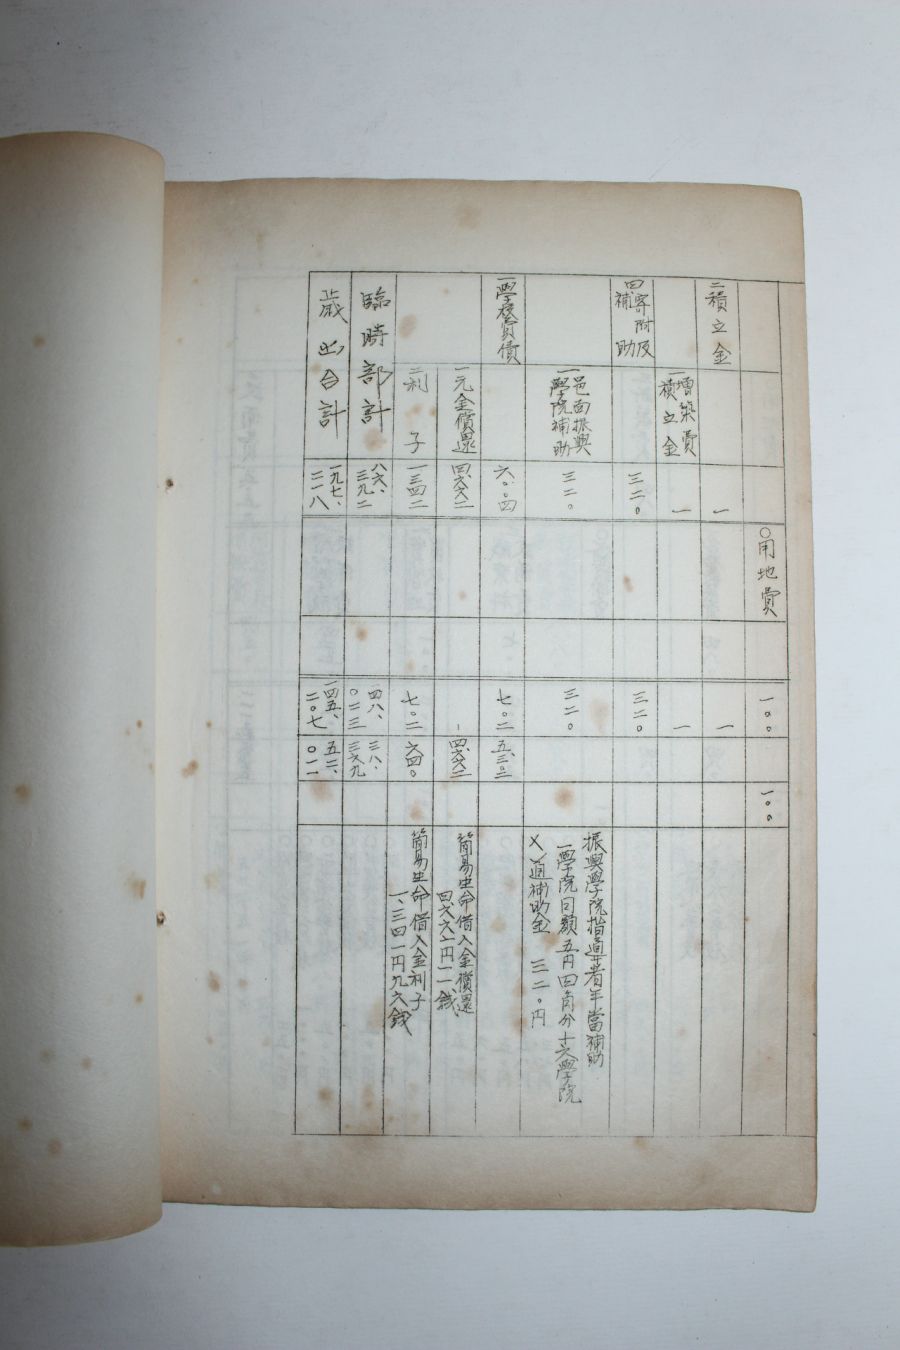 〇用地費
一〇〇
一〇〇
三積立金
一
一
一増築費
積立金
一
一
四寄附及
補助
三二〇
三二〇
一邑面振興
学院補助
三二〇
三二〇
振興学院指導者手当補助
一学院月額五円四角分十六学院
普通補助金 三二〇円
一学校費債
六〇〇四
七〇二
五、三〇二
一元金償還
四、六六二
四、六六二
簡易生命借入金償還
四、六六二円一一銭
二利子
一三四二
七〇二
六四〇
簡易生命借入金利子
一、三四一円九六銭
臨時部計
八六、
三九二
四八、
〇二三
三八、
三六九
歳出合計
一九七、
二一八
一四五、
二〇七
五二、
〇一一